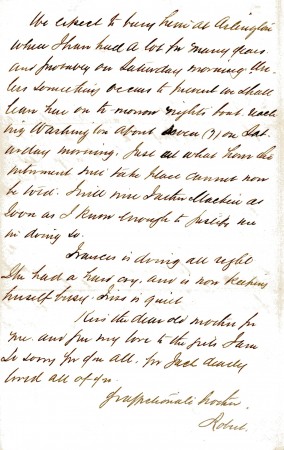 We expect to bury him at Arlington
where I have had a lot for many years
and probably on Saturday morning. Un-
less something occurs to prevent we shall
leave here on to morrow nights boat, reach
ing Washington about seven (7) on Sat-
urday morning. Just at what hour the
interment will take place cannot now
be told. I will wire Mackie as
soon as I know enough to justify me
in doing so.
Frances is doing all right
She had a hard cry, and is now keeping
herself busy. is quiet
Kiss the dear old mother for
me, and give my love to the girls. I am
so sorry for you all, for Jack dearly
loved all of you.
Yr affectionate brother,
Robert.